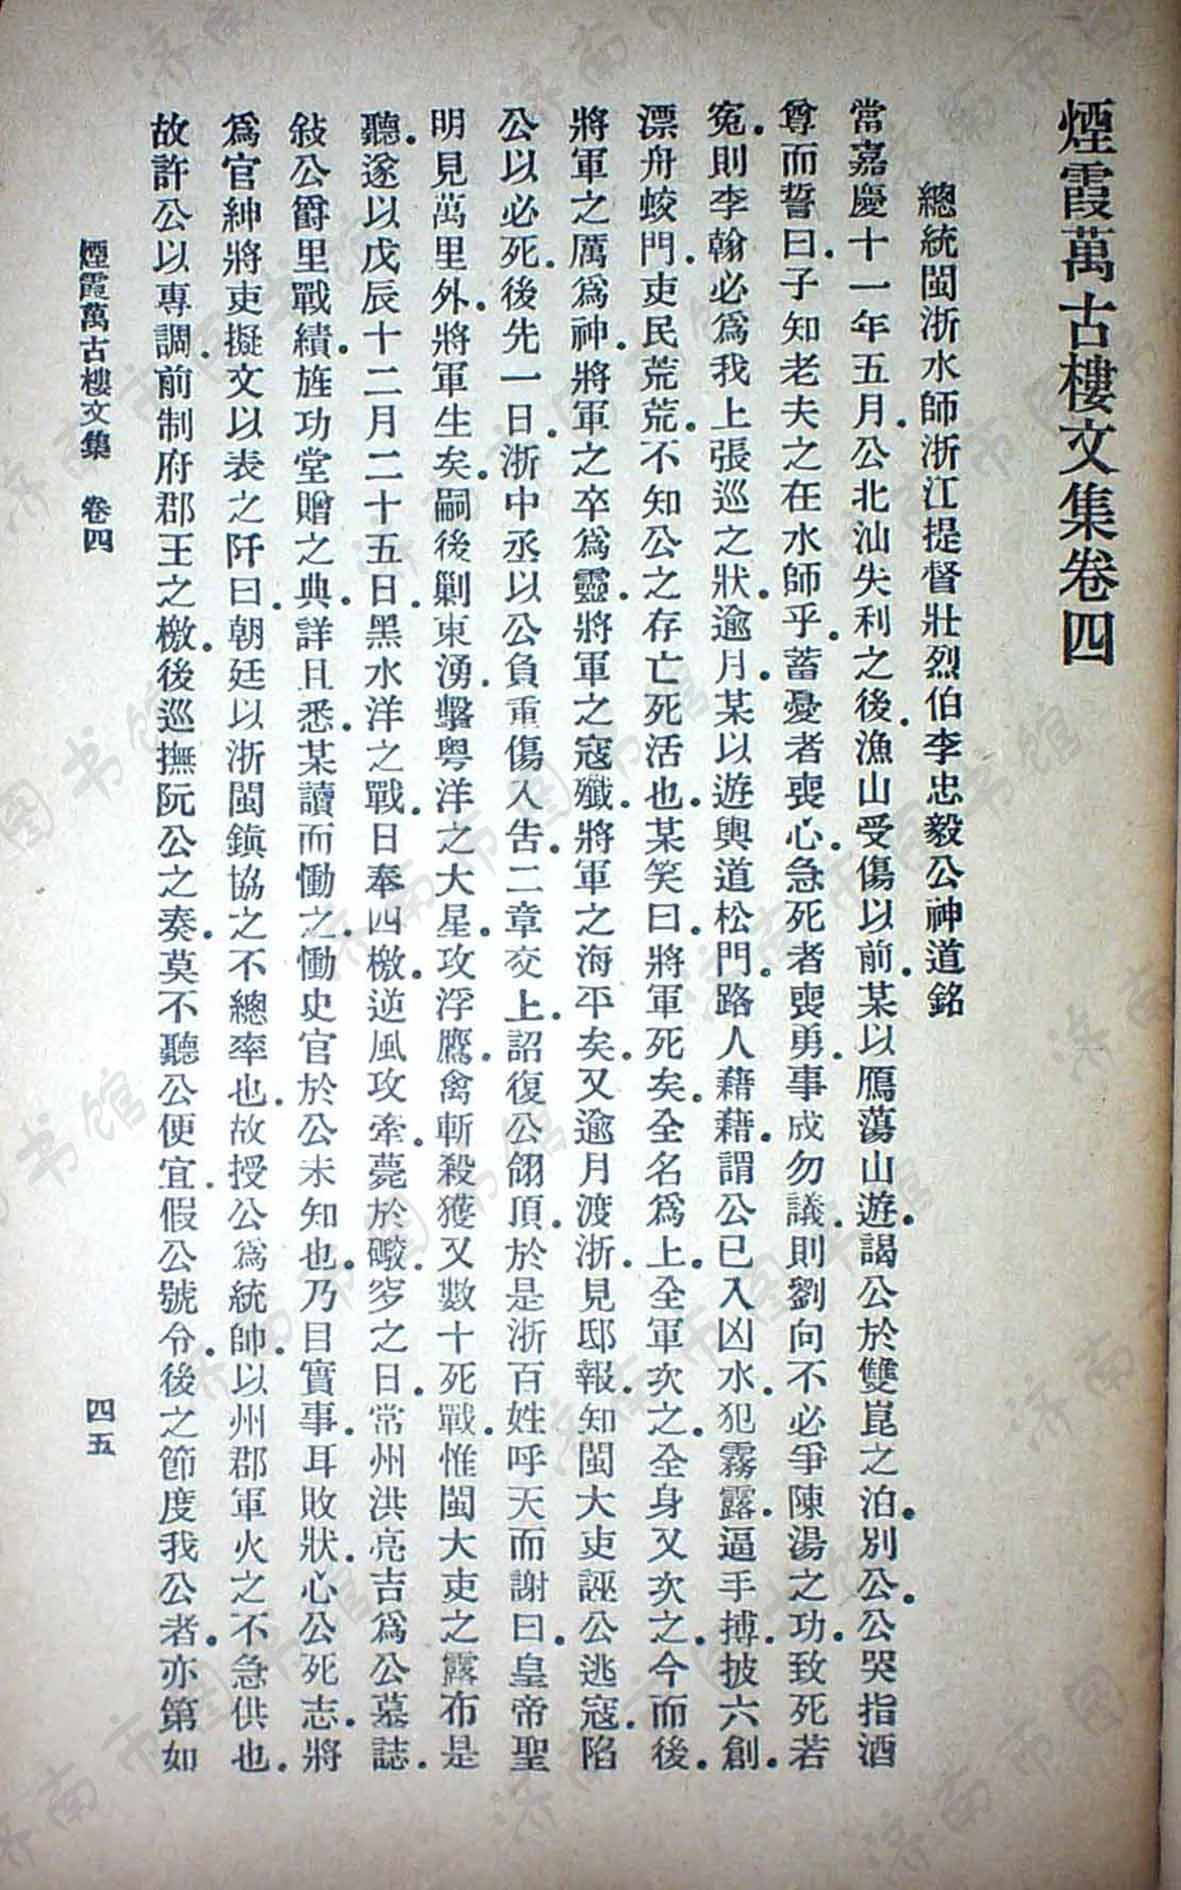 煙霞萬古樓文集卷四
總統閩浙水師浙江提督壯烈伯李忠毅公神道銘
當嘉慶十一年五月公北汕失利之後漁山受傷以前某以鴈蕩山遊謁公於雙崑之泊別公公哭指酒
尊而誓曰子知老夫之在水師乎蓄憂者喪心急死者喪勇事成勿議則劉向不必爭陳湯之功致死若
冤則李翰必爲我上張巡之狀逾月某以遊輿道松門路人藉藉謂公已入凶水犯霧露逼手搏披六創
漂舟蛟門吏民荒荒不知公之存亡死活也某笑曰將軍死矣全名爲上全軍次之全身又次之今而後
將軍之厲爲神將軍之卒爲靈將軍之寇殲將軍之海平矣又逾月渡浙見邸報知閩大吏誣公逃寇陷
公以必死後先一日浙中丞以公負重傷入告二章交上詔復公翎頂於是浙百姓呼天而謝曰皇帝聖
明見萬里外將軍生矣嗣後剿東湧擊粵洋之大星攻浮鷹禽斬殺獲又數十死戰惟閩大吏之露布是
聽遂以戊辰十二月二十五日黑水洋之戰日奉四檄逆風攻牽薨於礮穸之日常州洪亮吉爲公墓誌
敍公爵里戰績旌功堂贈之典詳且悉某讀而慟之慟史官於公未知也乃目實事耳敗狀心公死志將
爲官紳將吏擬文以表之阡曰朝廷以浙閩鎮協之不總率也故授公爲統帥以州郡軍火之不急供也
故許公以專調前制府郡王之檄後巡撫阮公之奏莫不聽公便宜假公號令後之節度我公者亦第如
煙霞萬古樓文集 卷四
四五